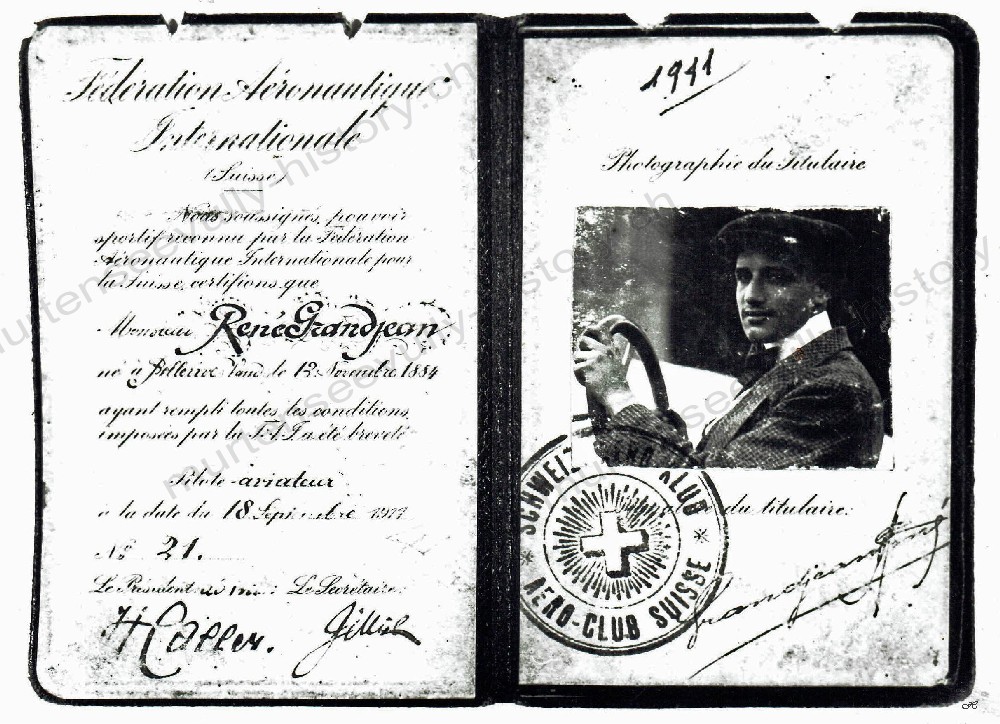 Fédération Aéronautique
Internationale
(Suisse)
Nous soussignés, pouvoir
sportif reconnu par la Fédération
Aéronautique Internationale pour
la Suisse, certifions que
Monsieur René Grandjean
né à Bellerive Vaud le 12 Novembre 1884
ayant rempli toutes les conditions,
imposées par la F.A.I. a été breveté
Pilote-aviateur
à la date du 18 Septembre 1911
No 21.
Le Président Le Secrétaire:
1911
Photographie du Titulaire
SCHWEIZ. AERO KLUB
AERO-CLUB SUISSE
du titulaire:
Grandjean René
murtenseevully-history.ch
murtenseevully-history.ch
murtenseevully-history.ch